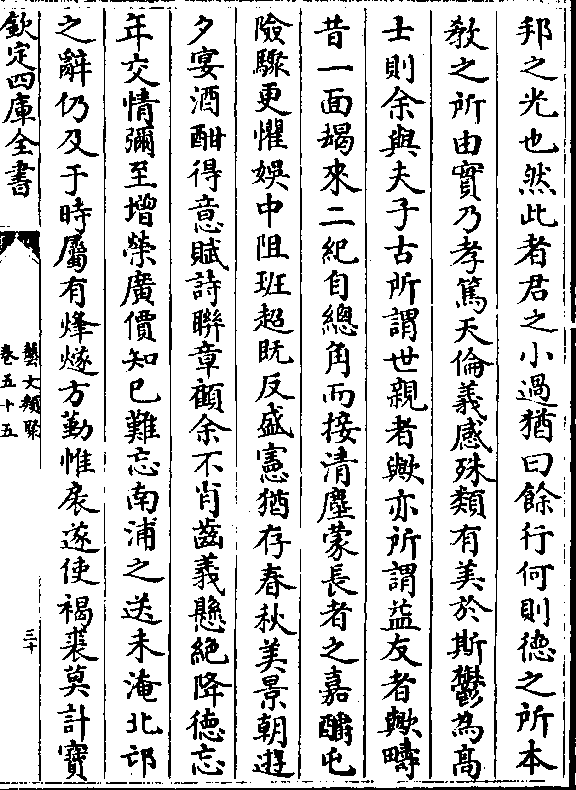 邦之光也然此者君之小過猶曰餘行何則德之所本
敎之所由實乃孝篤天倫義感殊類有美於斯鬱為髙
士則余與夫子古所謂世親者歟亦所謂益友者歟疇
昔一面朅來二紀自總角而接清塵蒙長者之嘉醻屯
險驟更懼娛中阻班超既反盛憲猶存春秋美景朝遊
夕宴酒酣得意賦詩聯章顧余不肖齒義懸絶降德忘
年交情彌至增榮廣價知已難忘南浦之送未淹北邙
之辭仍及于時屬有烽燧方勤惟扆遂使褐裘莫計寶
欽定四庫全書
藝文類聚
卷五十五
三十